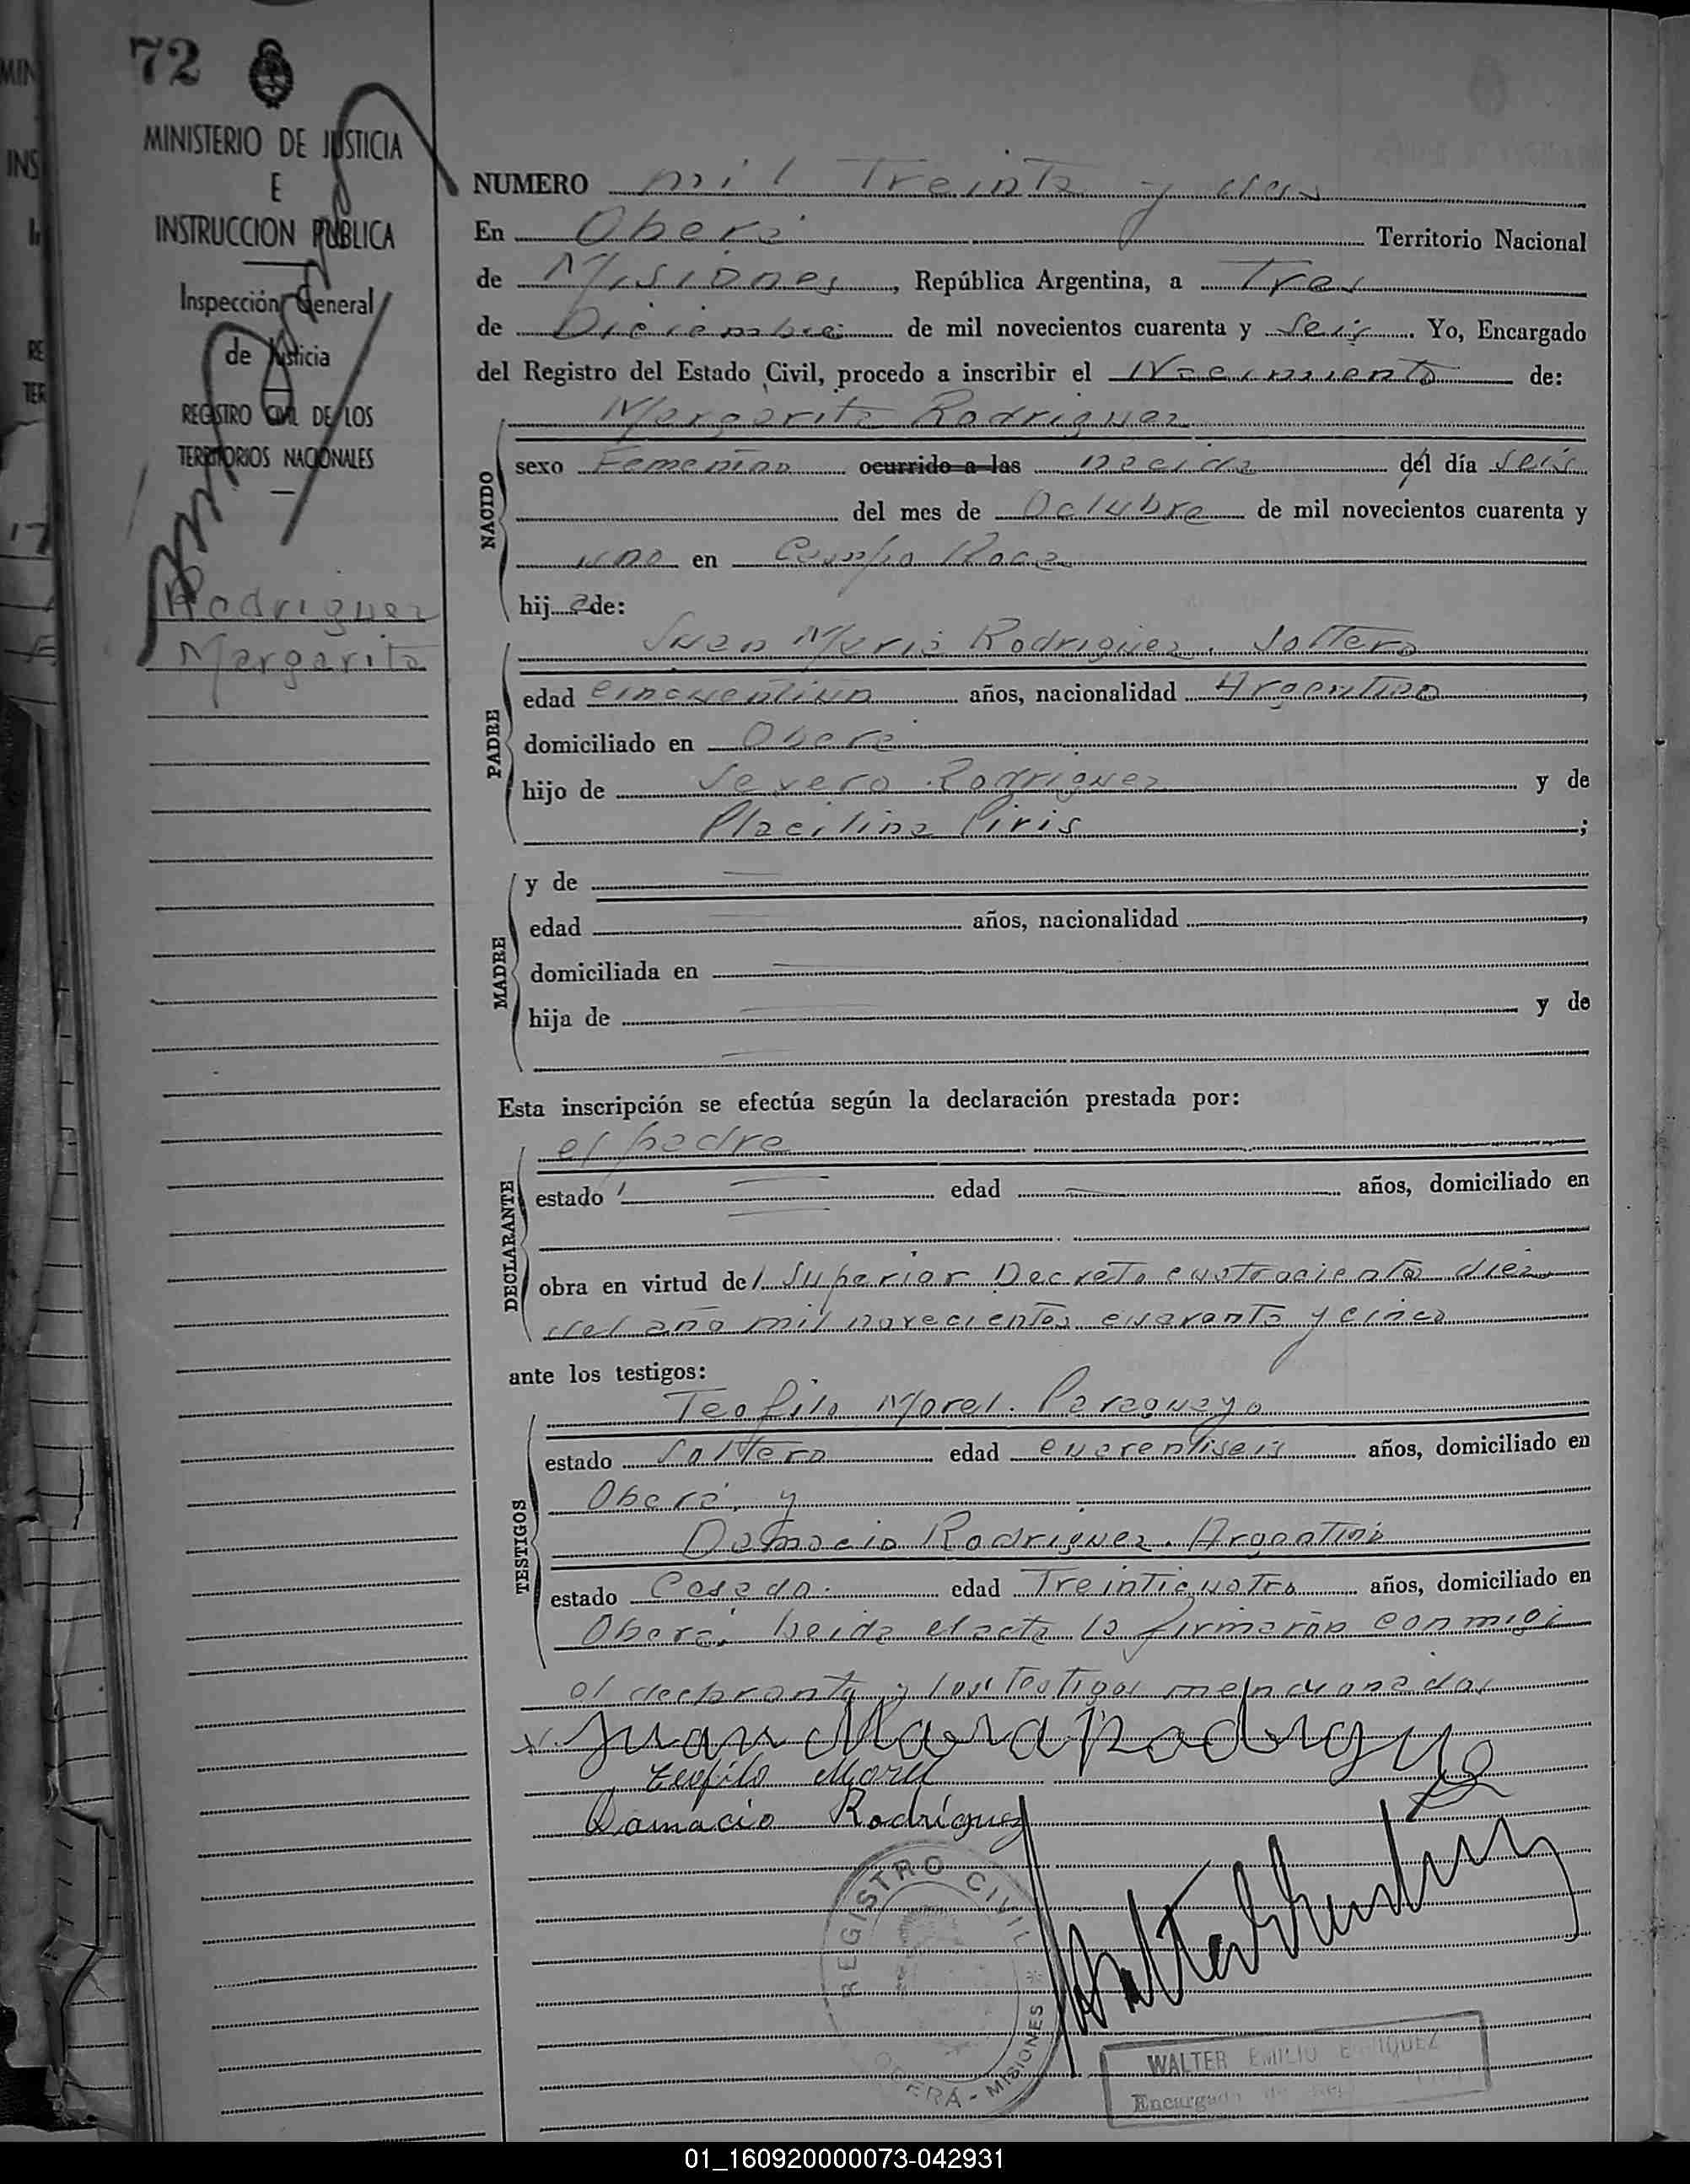 72
MINISTERIO DE JUSTICIA
E
INSTRUCCION PUBLICA
Inspección General
de Justicia
REGISTRO CIVIL DE LOS
TERRITORIOS NACIONALES
Rodriguez
Margarita
NUMERO mil Treinta y dos
En Oberá Territorio Nacional
de Misiones, República Argentina, a Tres
de Diciembre de mil novecientos cuarenta y Seis. Yo, Encargado
del Registro del Estado Civil, procedo a inscribir el Nacimiento de:
Margarita Rodriguez
NACIDO
sexo Femenino ocurrido a las nacida del día seis
del mes de Octubre de mil novecientos cuarenta y
uno en Campo Roca
hija de:
PADRE
Juan Maria Rodriguez. Soltero
edad cincuentiun años, nacionalidad Argentino,
domiciliado en Oberá
hijo de Severo Rodriguez y de
Placilina Piris;
MADRE
y de
edad años, nacionalidad ,
domiciliada en
hija de y de
Esta inscripción se efectúa según la declaración prestada por:
DECLARANTE
el padre
estado edad años, domiciliado en
obra en virtud del Superior Decreto cuatrociento diez
del año mil novecientos cuarenta y cinco
ante los testigos:
TESTIGOS
Teofilo Morel. Paraguayo
estado Soltero edad cuarentiseis años, domiciliado en
Oberá, y
Damacio Rodriguez. Argentino
estado Casado. edad Treinticuatro años, domiciliado en
Oberá. Leida el acta la firmarón conmigo
el declarante y los Testigos mencionados
x Juan Maria Rodrigue
Teofilo Morel
Damacio Rodríguez
REGISTRO CIVIL
OBERÁ - MISIONES
WALTER EMILIO ENRIQUEZ
Encargado
01_160920000073-042931